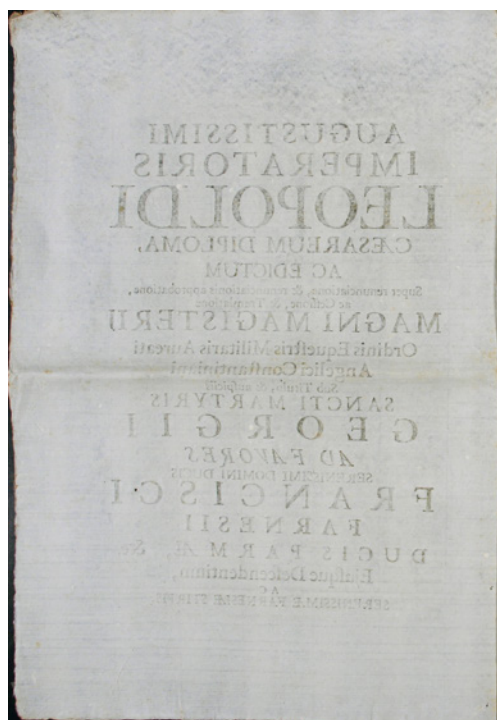 AUGUSTISSIMI
IMPERATORIS
LEOPOLDI
CÆSAREUM DIPLOMA,
AC EDICTUM
Super renunciatione, & renunciationis approbatione,
ac Cessione, & Translatione
MAGNI MAGISTERII
Ordinis Equestris Militaris Aureati
Angelici Constantiniani
Sub Titulo, & auspiciis
SANCTI MARTYRIS
GEORGII
AD FAVORES
SERENISSIMI DOMINI DUCIS
FRANCISCI
FARNESII
DUCIS PARMÆ, &c.
Ejusque Descendentium,
AC
SERENISSIMÆ FARNESIÆ STIRPIS.